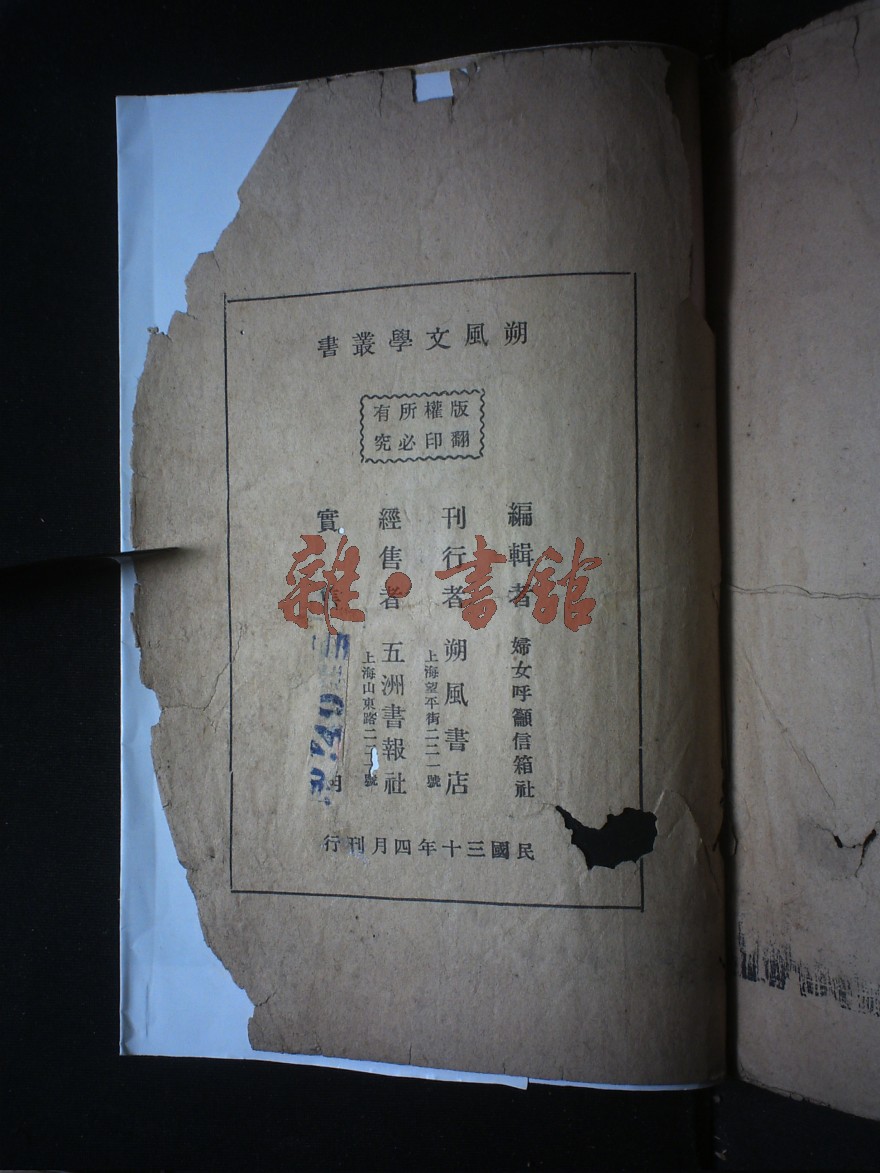 朔風文學叢書
版權所有
翻印必究
編輯者 婦女呼籲信箱社
刊行者 朔風書店
上海望平街二二一號
經售者 五洲書報社
上海山東路二二一號
實
民國三十年四月刊行
雜·書館